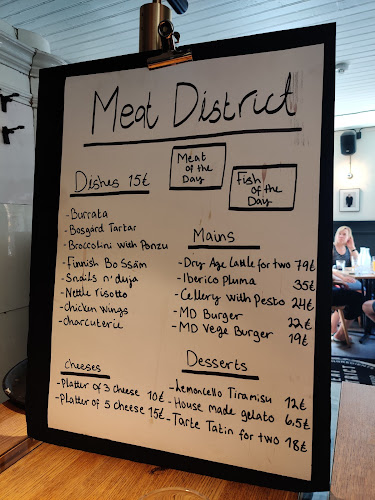 Meat District
Meat
of the
Day
Fish
of the
Day
Dishes 15€
- Burrata
- Bosgård Tartar
- Broccolini with Ponzu
- Finnish Bo Ssäm
- Snails n' duja
- Nettle risotto
- chicken wings
- charcuterie
Mains
- Dry Age Cattle for two 79€
- Iberico Pluma 35€
- Cellery with Pesto 24€
- MD Burger 22€
- MD Vege Burger 19€
Cheeses
- Platter of 3 cheese 10€
- Platter of 5 cheese 15€
Desserts
- Lemoncello Tiramisu 12€
- House made gelato 6,5€
- Tarte Tatin for two 18€